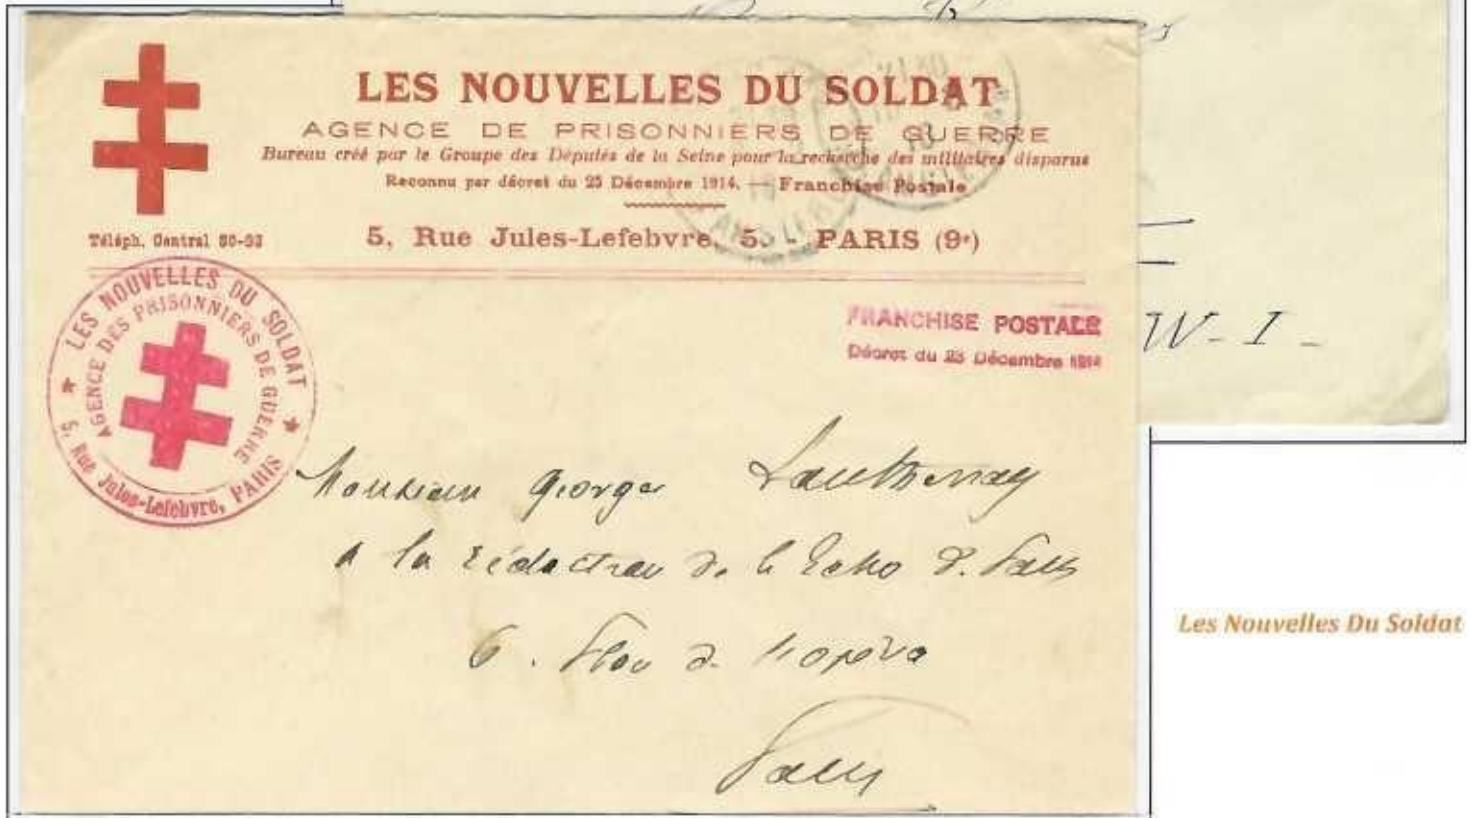 LES NOUVELLES DU SOLDAT
AGENCE DE PRISONNIERS DE GUERRE
Bureau créé par le Groupe des Députés de la Seine pour la recherche des militaires disparus
Reconnu par décret du 23 Décembre 1914. — Franchise Postale
Téléph. Central 80-93
5, Rue Jules-Lefebvre, 5 - PARIS (9e)
★ LES NOUVELLES DU SOLDAT ★
AGENCE DES PRISONNIERS DE GUERRE
5, Rue Jules-Lefebvre, PARIS
FRANCHISE POSTALE
Décret du 23 Décembre 1914
W-I-
Monsieur Georges
à la rédaction de l'Echo d. Paris
6. de l'opéra
Paris
Les Nouvelles Du Soldat